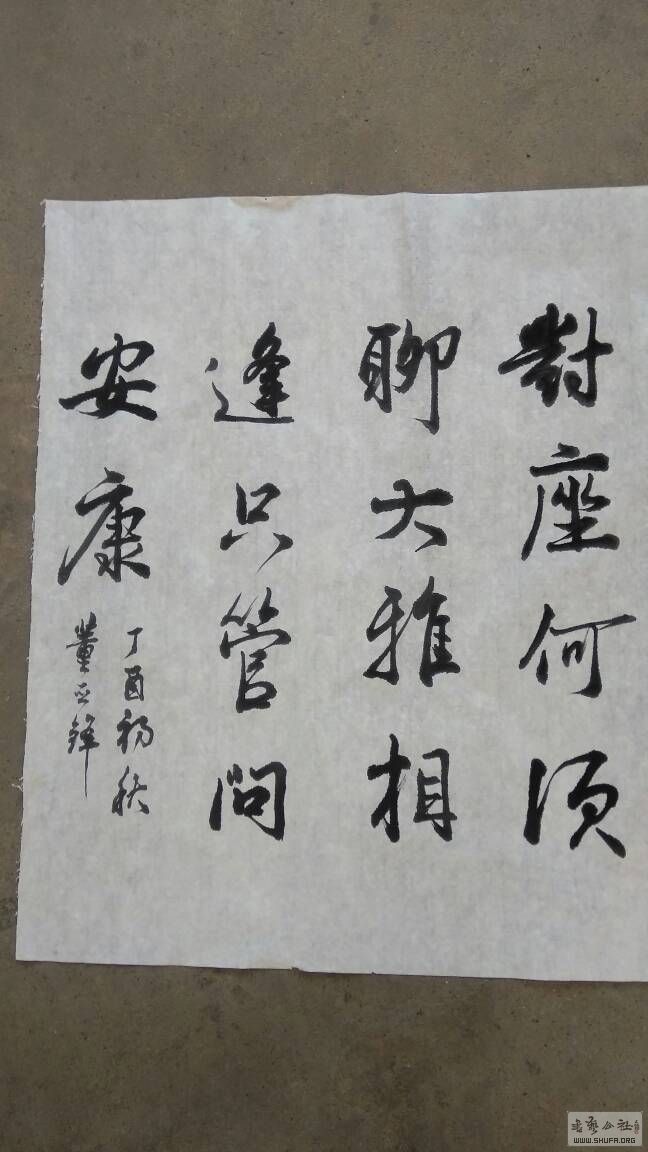 對座何須
聊大雅相
逢只管問
安康
丁酉初秋
董正鋒
书艺公社
WWW.SHUFA.ORG